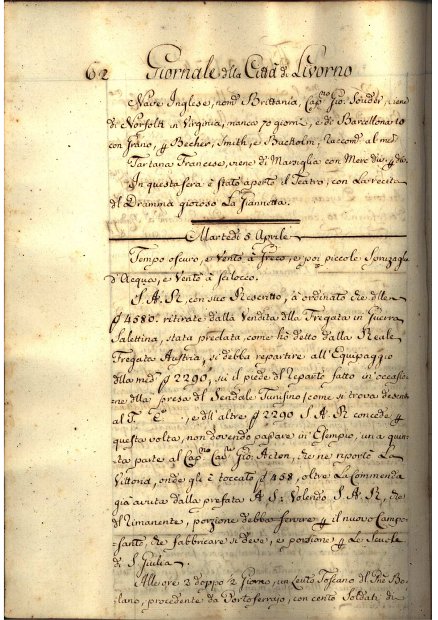 62 Giornale della Città di Livorno
Nave Inglese, nom: Brittania, Cap:no Gio: Souder, viene
di Norfolk in Virginia, manca 70 giorni, e di Barcellona 10
con Grano, p Becher, Smith, e Bucholm, Raccom: al med:
Tartana Francese, viene di Marsiglia con Merc: div: p div:
In questa sera è stato aperto il Teatro, con la recita
del Dramma giocoso La Giannetta.
Martedì 5 Aprile
Tempo oscuro, e Vento à Greco, e poi piccole Spruzaglie
d'Acqua, e Vento à scilocco.
S. A. R. con suo Rescritto, à ordinato che delle
p 4580. ritirate dalla Vendita della Fregata in Guerra
Salettina, stata predata, come hò detto dalla Reale
Fregata Austria, si debba repartire all'Equipaggio
della med:ma p 2290, sù il piede del Reparto fatto in occasio-
ne della presa del Tunisino /come si trova
al T. , e dell'altre p 2290 S. A. R. concede p
questa volta, non dovendo passare in Esempio, una quin-
ta parte al Cap:no Cav:re Gio: Acton, che ne riportò La
Vittoria, onde gli è toccato p 458, oltre La Commenda
già avuta dalla prefata A. S: Volendo S. A. R, che
del Rimanente, porzione debba servire p il nuovo Campo-
santo, che fabbricare si deve, e porzione p Le Scuole
di S. Giulia.
Alle ore 2 doppo 2 Giorno, un Leuto Toscano del Pne Bo-
lano, procedente da Portoferrajo, con cento Soldati di